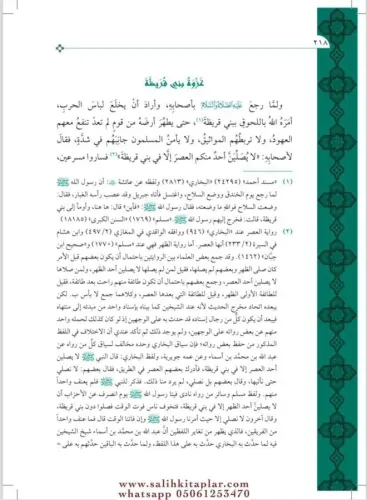 ٢١٨
غَزْوَةُ بَنِي قُرَيْظَةَ
ولمَّا رجعَ عَلَيْهِ الصَّلَاةُ وَالسَّلَامُ بأصحابِهِ، وأرادَ أنْ يخلَعَ لباسَ الحربِ،
أمَرَهُ اللهُ باللحوقِ ببني قريظةَ(١)، حتى يطهِّرَ أرضَهُ من قومٍ لم تعدْ تنفعُ معهم
العهودُ، ولا تربطُهُم المواثيقُ، ولا يأمنُ المسلمون جانِبَهُم في شدَّةٍ، فقالَ
لأصحابِهِ: «لا يُصَلِّيَنَّ أحدٌ منكم العصرَ إلَّا في بني قريظةَ»(٢) فساروا مسرعين،
(١) «مسند أحمد» (٢٤٢٩٥) «البخاري» (٢٨١٣) ولفظه عن عائشة: أن رسول الله ﷺ
لما رجع يوم الخندق ووضع السلاح، واغتسل فأتاه جبريل وقد عصب رأسه الغبار، فقال:
وضعت السلاح فوالله ما وضعته، فقال رسول الله ﷺ: «فأين» قال: ها هنا، وأومأ إلى بني
قريظة، قالت: فخرج إليهم رسول الله ﷺ. «مسلم» (١٧٦٩) «السنن الكبرى» (١٨١٨٥)
(٢) رواية العصر عند «البخاري» (٩٤٦) ووافقه الواقدي في المغازي (٤٩٧/٢) وابن هشام
في السيرة (٢٣٣/٢) أنها العصر. أما رواية الظهر فهي عند «مسلم» (١٧٧٠) و«صحيح ابن
حِبَّان» (١٤٦٢). وقد جمع بعض العلماء بين الروايتين باحتمال أن يكون بعضهم قبل الأمر
كان صلى الظهر وبعضهم لم يصلها، فقيل لمن لم يصلها لا يصلين أحد الظهر، ولمن صلاها
لا يصلين أحد العصر، وجمع بعضهم باحتمال أن تكون طائفة منهم راحت بعد طائفة، فقيل
للطائفة الأولى الظهر، وقيل للطائفة التي بعدها العصر، وكلاهما جمع لا بأس به. لكن
يبعده اتحاد مخرج الحديث لأنه عند الشيخين كما بيناه بإسناد واحد من مبدئه إلى منتهاه
فيبعد أن يكون كلٌّ من رجال إسناده قد حدث به على الوجهين إذ لو كان كذلك لحمله واحد
منهم عن بعض رواته على الوجهين، ولم يوجد ذلك ثم تأكد عندي أن الاختلاف في اللفظ
المذكور من حفظ بعض رواته؛ فإن سياق البخاري وحده مخالف لسياق كلٍّ من رواه عن
عبد الله بن محمَّد بن أسماء وعن عمه جويرية، ولفظ البخاري: قال النبي ﷺ لا يصلين
أحد العصر إلا في بني قريظة، فأدرك بعضهم العصر في الطريق، فقال بعضهم: لا نصلي
حتى نأتيها، وقال بعضهم بل نصلي، لم يرد منا ذلك. فذكر للنبي ﷺ فلم يعنف واحداً
منهم. ولفظ مسلم وسائر من رواه نادى فينا رسول الله ﷺ يوم انصرف عن الأحزاب أن
لا يصلينَّ أحدٌ الظهر إلا في بني قريظة، فتخوف ناس فوت الوقت فصلوا دون بني قريظة،
وقال آخرون لا نصلي إلا حيث أمرنا رسول الله ﷺ وإن فاتنا الوقت قال فما عنف واحداً
من الفريقين، فالذي يظهر من تغاير اللفظين أنَّ عبد الله بن محمَّد بن أسماء شيخ الشيخين
فيه لما حدَّث به البخاري حدَّث به على هذا اللفظ، ولما حدَّث به الباقين حدَّثهم به على =
www.salihkitaplar.com
whatsapp 05061253470